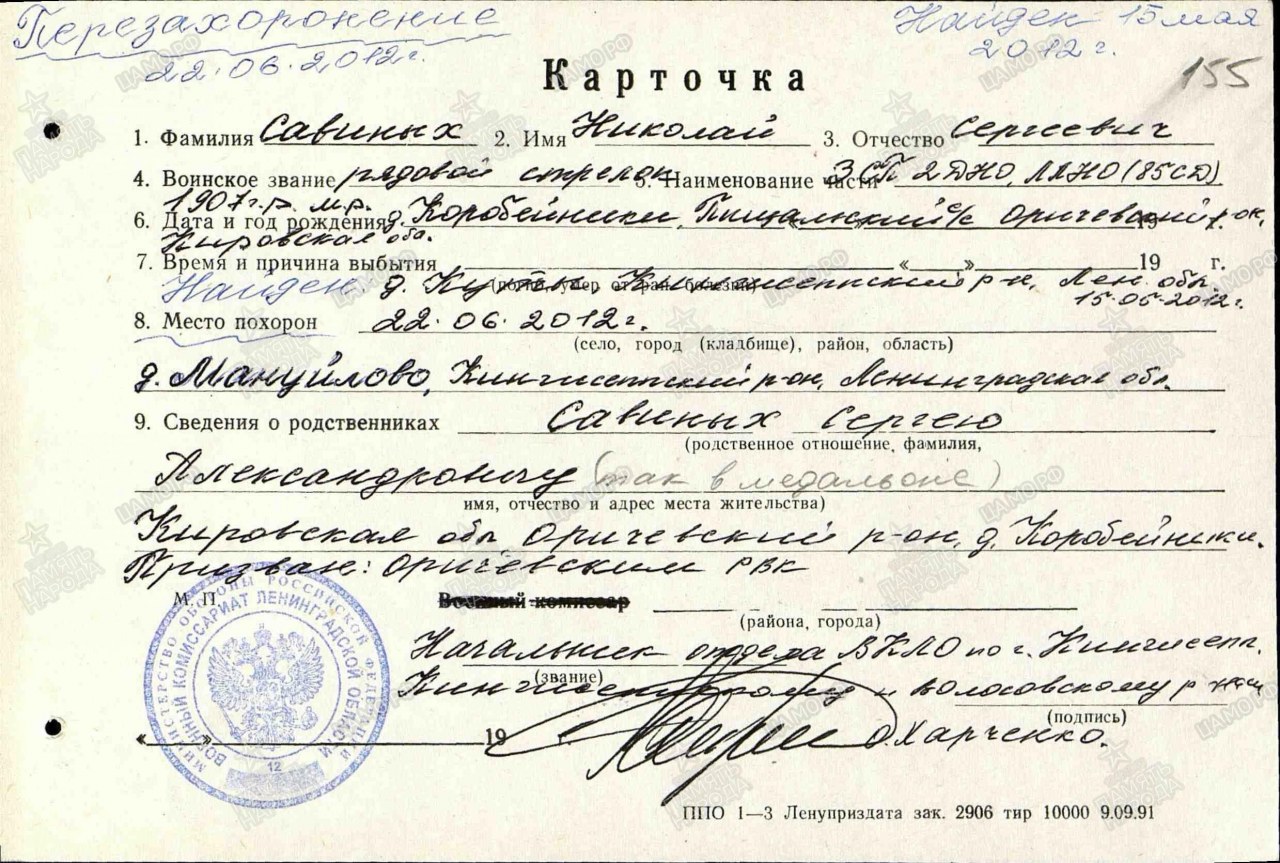 Перезахоронение
22.06.2012г.
Найден 15 мая
2012г.
155
Карточка
1. Фамилия Савиных 2. Имя Николай 3. Отчество Сергеевич
4. Воинское звание рядовой стрелок 5. Наименование части 3 СП 2 ДНО, ЛАНО (85 СД)
1907г.р. м.р.
6. Дата и год рождения д. Коробейники, Пищальский с/с Оричевский р-он,
Кировская обл.
7. Время и причина выбытия « » 19 г.
Найден д. Кингисеппский р-н, Лен. обл.
15.05.2012г.
8. Место похорон 22.06.2012г.
(село, город (кладбище), район, область)
д. Мануйлово, Кингисеппский р-он, Ленинградская обл.
9. Сведения о родственниках Савиных Сергею
(родственное отношение, фамилия,
Александровичу (так в медальоне)
имя, отчество и адрес места жительства)
Кировская обл Оричевский р-он, д. Коробейники.
Призван: Оричевским РВК
М. П. Военный комиссар
(района, города)
Начальник отдела ВКЛО по г. Кингисепп,
(звание)
Кингисеппскому и Волосовскому р
(подпись)
« » 19 г. О. Харченко.
МИНИСТЕРСТВО ОБОРОНЫ РОССИЙСКОЙ ФЕДЕРАЦИИ
ВОЕННЫЙ КОМИССАРИАТ ЛЕНИНГРАДСКОЙ ОБЛАСТИ
12
ППО 1—3 Ленуприздата зак. 2906 тир 10000 9.09.91